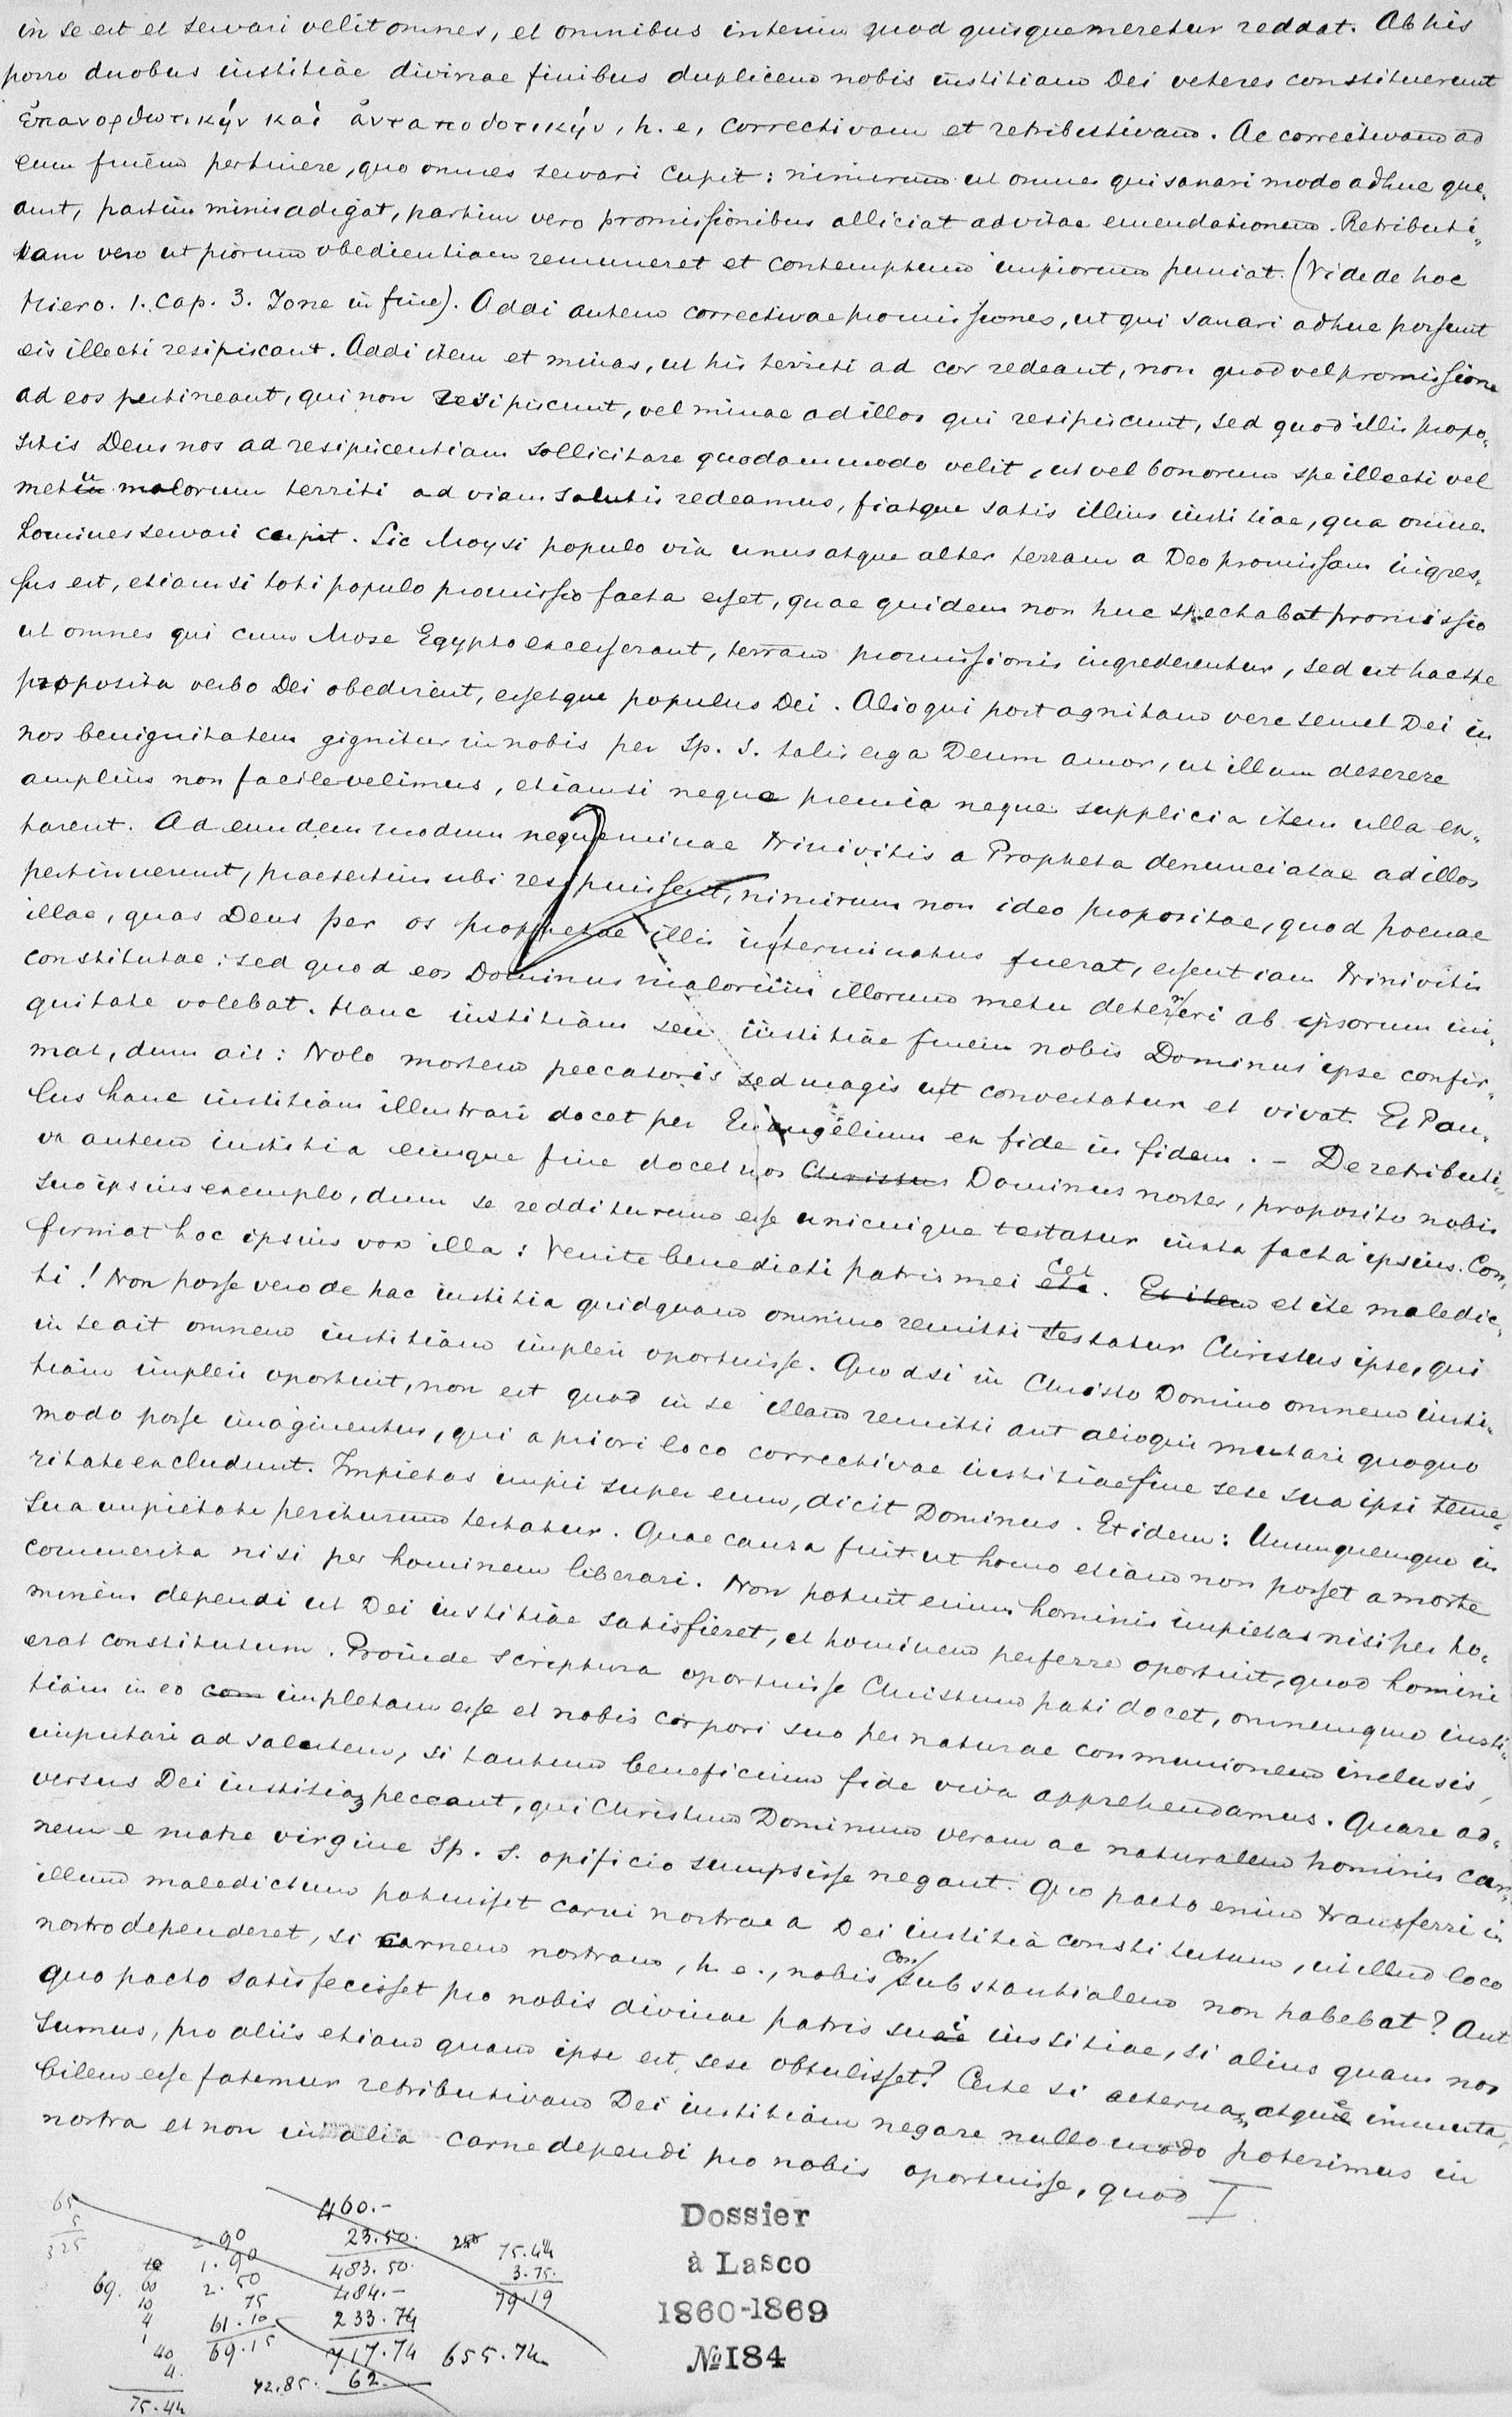 in se est et servari velit omnes, et omnibus interim quod quisque meretur reddat. Ab his
porro duobus iustitiae divinae finibus duplicem nobis iustitiam Dei veteres constituerunt
ἐπανορθωτικήν καὶ ἀνταποδοτικήν, h. e. correctivam et retributivam. Ac correctivam ad
eum finem pertinere, quo omnes servari cupit: nimirum ut omnes qui sanari modo adhuc que-
ant, partim minis adigat, partim vero promissionibus alliciat ad vitae emendationem. Retributi-
vam vero ut piorum obedientiam remuneret et contemptum impiorum puniat. (Vide de hoc
Hiero. 1. cap. 3. Jone in fine). Addi autem correctivae promissiones, ut qui sanari adhuc possunt
eis illecti resipiscant. Addi item et minas, ut his territi ad cor redeant, non quod vel promissione
ad eos pertineant, qui non resipiscunt, vel minae ad illos qui resipiscunt, sed quod illis propo-
sitis Deus nos ad resipiscentiam sollicitare quodammodo velit, ut vel bonorum spe illecti vel
metu malorum territi ad viam salutis redeamus, fiatque satis illius iustitiae, qua omnes
homines servari cupit. Sic Moysi populo vix unus atque alter terram a Deo promissam ingres-
sus est, etiamsi toti populo promissio facta esset, quae quidem non huc spectabat promissio
ut omnes qui cum Mose Egypto excesserant, terram promissionis ingrederentur, sed ut hac spe
proposita verbo Dei obedirent, essetque populus Dei. Alioqui post agnitam vere semel Dei in
nos benignitatem gignitur in nobis per Sp. S. talis erga Deum amor, ut illum deserere
amplius non facile velimus, etiamsi neque premia neque supplicia item ulla ex-
tarent. Ad eundem modum neque minae Ninivitis a Propheta denunciatae ad illos
pertinuerunt, praesertim ubi resipuissent, nimirum non ideo propositae, quod poenae
illae, quas Deus per os prophetae illis interminatus fuerat, essent iam Ninivitis
constitutae: sed quod eos Dominus malorum illorum metu deterreri ab ipsorum ini-
quitate volebat. Hanc iustitiam seu iustitiae finem nobis Dominus ipse confir-
mat, dum ait: Nolo mortem peccatoris sed magis ut convertatur et vivat. Et Pau-
lus hanc iustitiam illustrari docet per Evangelium ex fide in fidem. - De retributi-
va autem iustitia eiusque fine docet nos Christus Dominus noster, proposito nobis
suo ipsius exemplo, dum se redditurum esse unicuique testatur iuxta facta ipsius. Con-
firmat hoc ipsius vox illa: Venite benedicti patris mei etc. cet Et item et ite maledic-
ti! Non posse vero de hac iustitia quidquam omnino remitti testatur Christus ipse, qui
in se ait omnem iustitiam impleri oportuisse. Quodsi in Christo Domino omnem iusti-
tiam impleri oportuit, non est quod in se illam remitti aut alioqui mutari quoquo
modo posse imaginentur, qui a priori loco correctivae iustitiae fine sese sua ipsi teme-
ritate excludunt. Impietas impii super eum, dicit Dominus. Et idem: Unumquemque in
sua impietate periturum testatur. Quae causa fuit ut homo etiam non posset a morte
commerita nisi per hominem liberari. Non potuit enim hominis impietas nisi per ho-
minem dependi ut Dei iustitiae satisfieret, et hominem perferre oportuit, quod homini
erat constitutum. Proinde scriptura oportuisse Christum pati docet, omnemque iusti-
tiam in eo com impletam esse et nobis corpori suo per naturae communionem inclusis,
imputari ad salutem, si tantum beneficium fide viva apprehendamus. Quare ad-
versus Dei iustitiam peccant, qui Christum Dominum veram ac naturalem hominis car-
nem e matre virgine Sp. S. opificio sumpsisse negant. Quo pacto enim transferri in
illum maledictum potuisset carni nostrae a Dei iustitia constitutum, ut illud loco
nostro dependeret, si carnem nostram, h. e., nobis consubstantialem non habebat? Aut
quo pacto satisfecisset pro nobis divinae patris sui iustitiae, si alius quam nos
sumus, pro aliis etiam quam ipse est, sese obtulisset? Certe si aeternam atque immuta-
bilem esse fatemur retributivam Dei iustitiam negare nullo modo poterimus in
nostra et non in alia carne dependi pro nobis oportuisse, quod I
65
5
325
2.90
1.90
2.50
75
61.10
69.15
69.
10
60
10
4
1
40
4.
75.44
460.-
23.50.
483.50.
484.-
233.74
717.74
62.
72.85.
655.74
250
75.44
3.75.
79.19
Dossier
à Lasco
1860-1869
№184